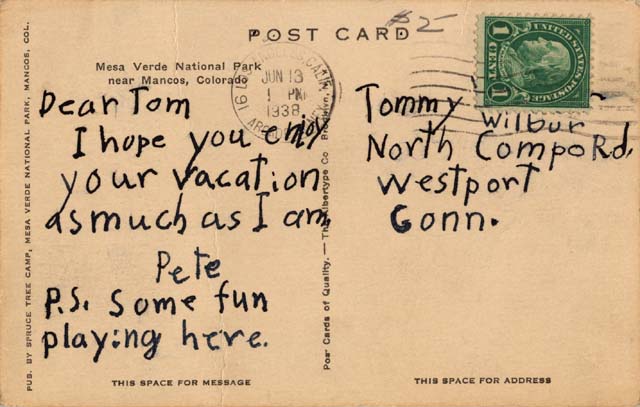 $2-
POST CARD
Mesa Verde National Park
near Mancos, Colorado
JUN 13
1 PM
1938
UNITED STATES POSTAGE
1 CENT 1
Dear Tom
I hope you enjoy
your vacation
as much as I am,
Pete
P.S. Some fun
playing here.
Tommy Wilbur
North Compo Rd.
Westport
Conn.
PUB. BY SPRUCE TREE CAMP, MESA VERDE NATIONAL PARK, MANCOS, COL.
Post Cards of Quality. — The Albertype Co. Brooklyn, N.Y.
THIS SPACE FOR MESSAGE
THIS SPACE FOR ADDRESS